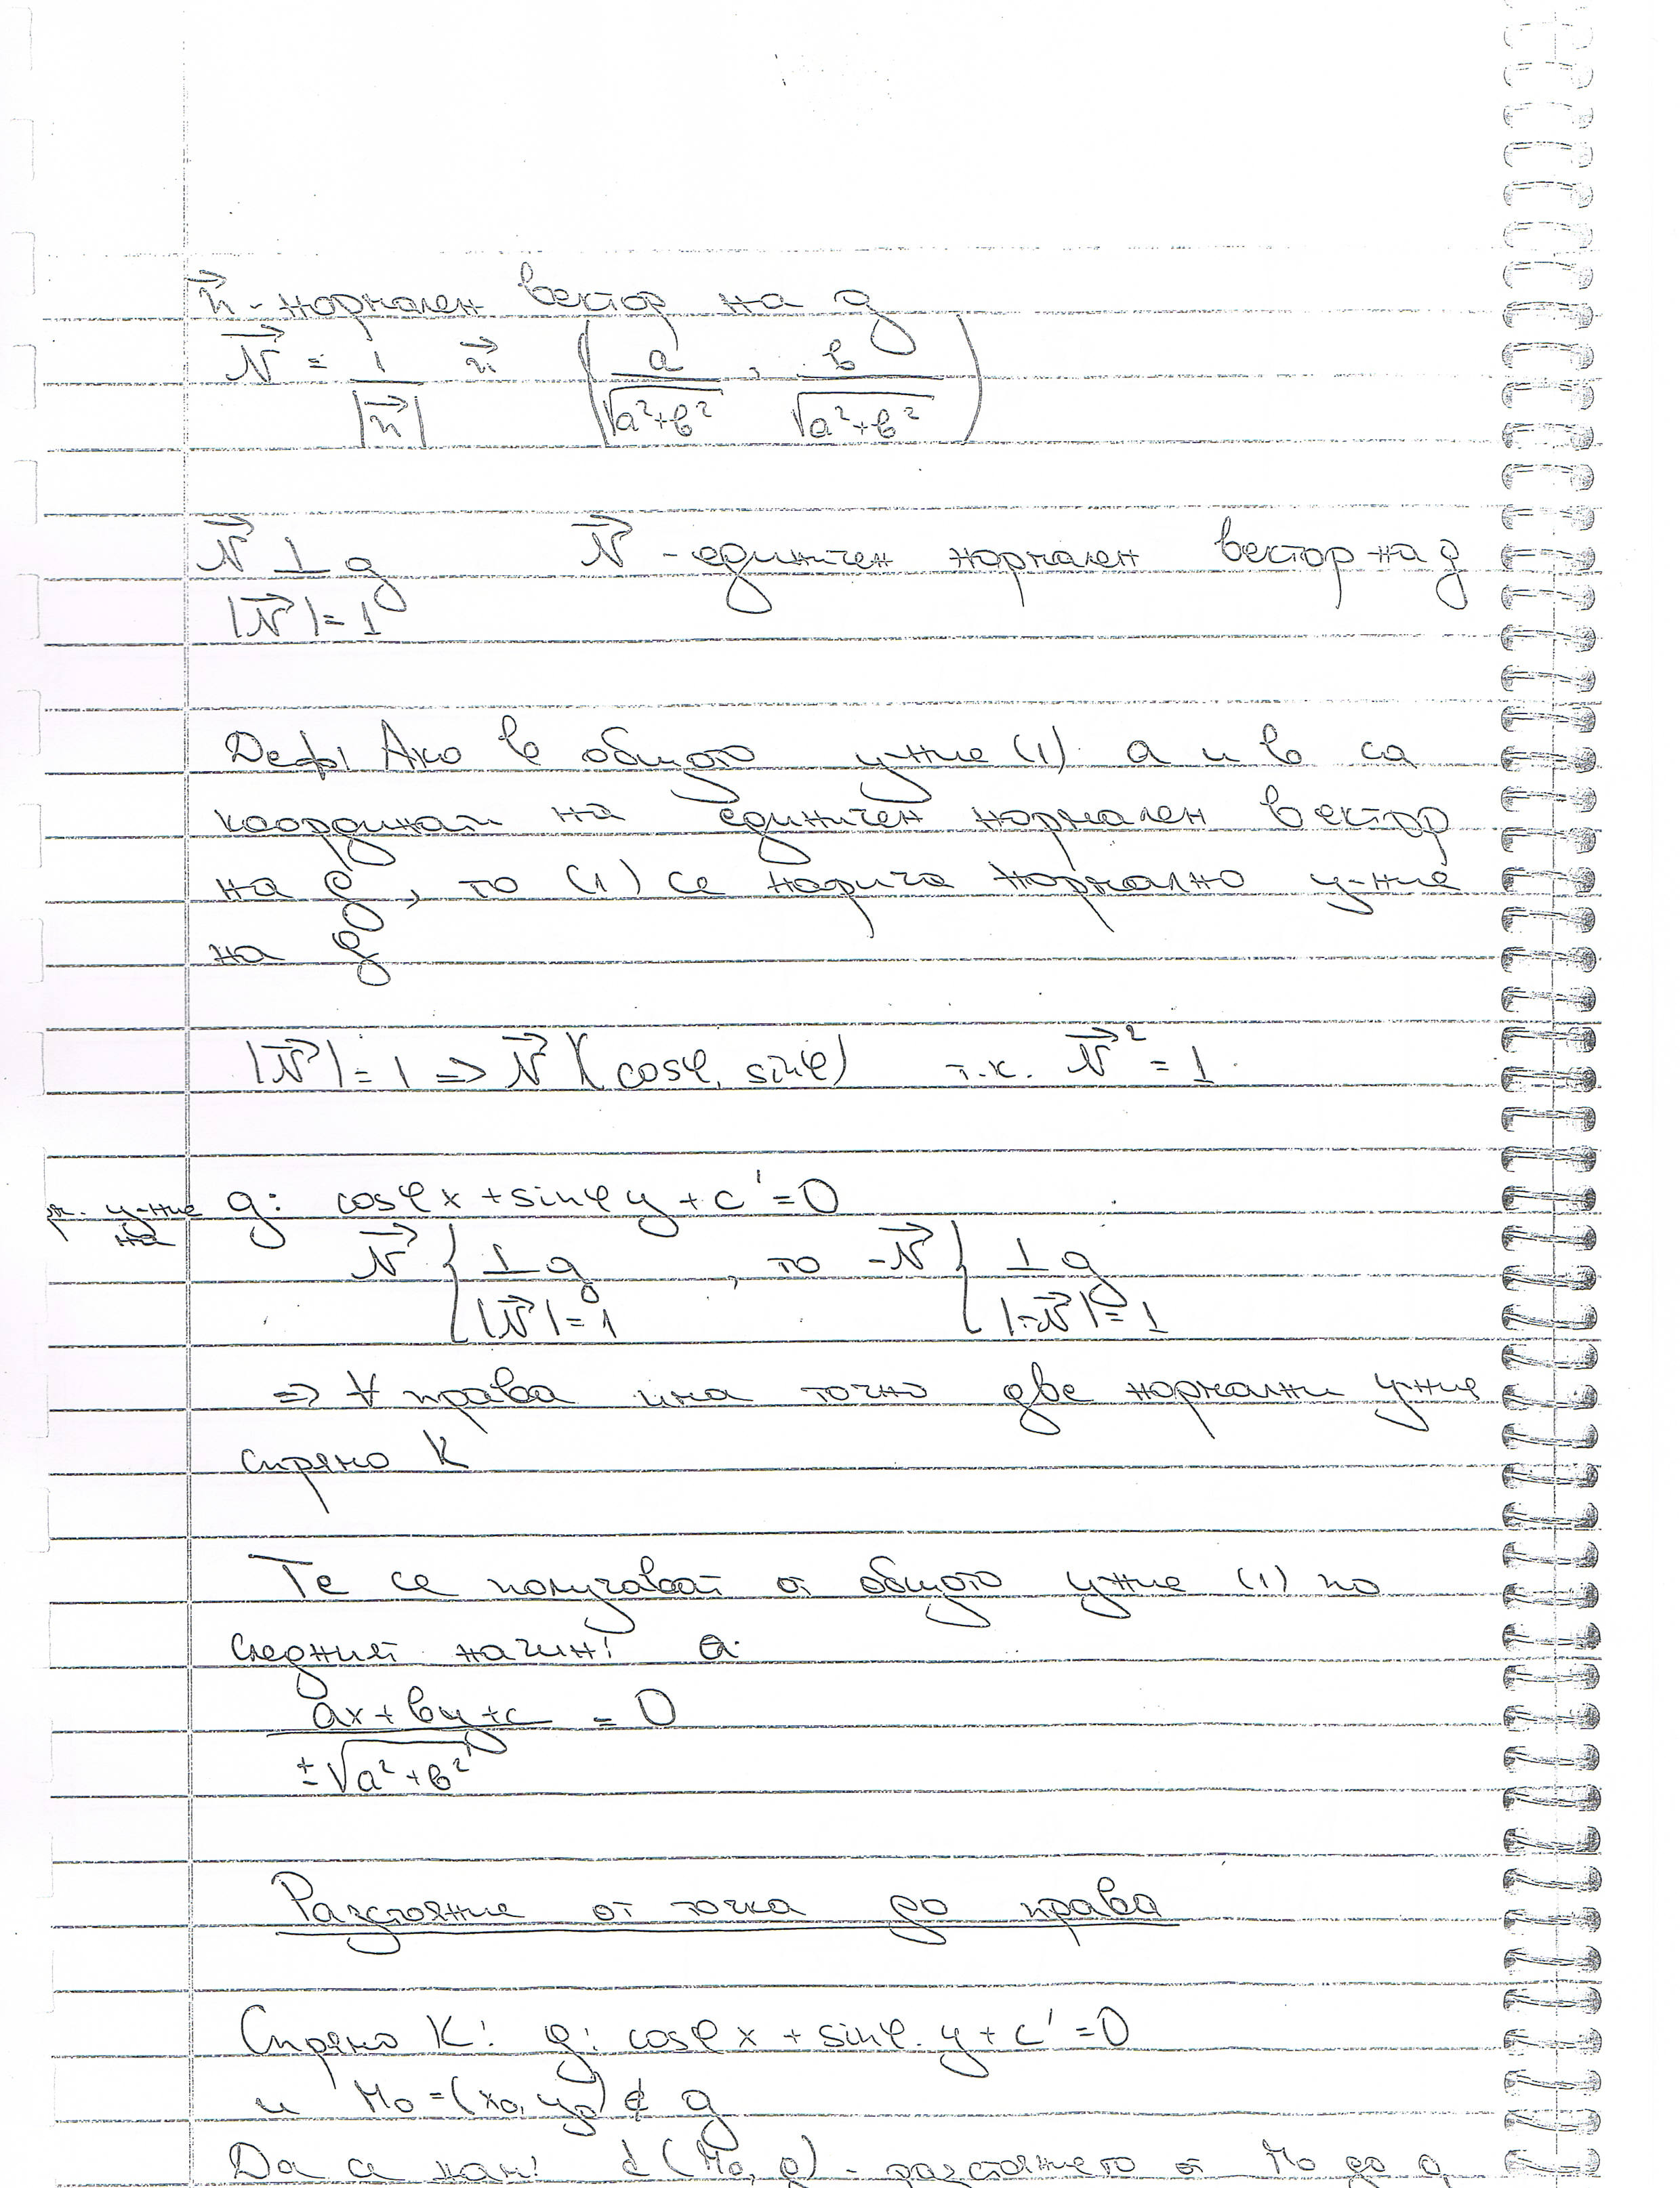 n⃗ - нормален вектор на g
N⃗ = 1/|n⃗| n⃗ (a/√(a²+b²), b/√(a²+b²))
N⃗ ⊥ g N⃗ - единичен нормален вектор на g
|N⃗| = 1
Деф! Ако в общото у-ние (1) a и b са
координати на единичен нормален вектор
на g, то (1) се нарича нормално у-ние
на g
|N⃗| = 1 => N⃗ (cosφ, sinφ) т.к. N⃗² = 1
у-ние на g: cosφ x + sinφ y + c' = 0
N⃗ { ⊥ g , то -N⃗ { ⊥ g
|N⃗| = 1 |-N⃗| = 1
=> ∀ права има точно две нормални у-ния
спрямо K
Те се получават от общото у-ние (1) по
следния начин: a
(ax + by + c)/(±√(a²+b²)) = 0
Разстояние от точка до права
Спрямо K: g: cosφ x + sinφ. y + c' = 0
и M₀ = (x₀, y₀) ∉ g
Да се нам! d(M₀, g) - разстоянието от M₀ до g